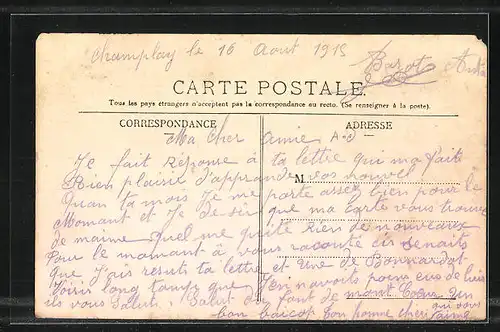 Champlay le 16 Aout 1915
CARTE POSTALE
Tous les pays étrangers n'acceptent pas la correspondance au recto. (Se renseigner à la poste).
CORRESPONDANCE
ADRESSE
Ma Cher amie
Je fait Réponse à ta lettre qui ma faite
Bien plaisir d'apprande vos nouvel
M
Quan ta mois Je me porte assez bien pour le
Momant et Je desir que ma Carte vous trouve
de maime Quel me quite Rien de nouveaux
Pour le momant à vous raconté
que J'ais resuts ta lettre et une de Bonnardot
long tamps que J'en navoits
ils vous Salut. Salut de font de mont Coeur un
qui vous
bon baicot bon homme cheri t'aime